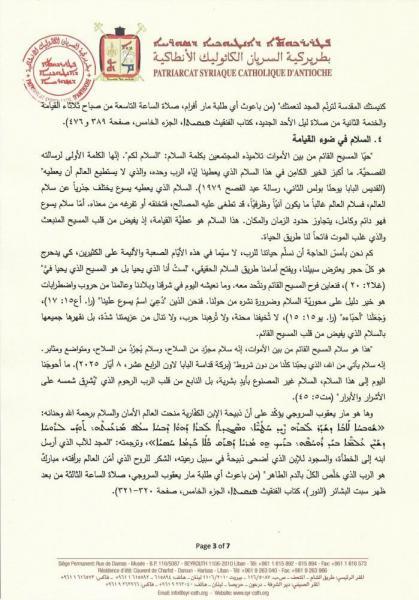 ܦܛܪܝܪܟܘܬܐ ܕܐܢܛܝܘܟܝܐ ܕܣܘܪܝܝܐ
بطريركية السريان الكاثوليك الأنطاكية
PATRIARCAT SYRIAQUE CATHOLIQUE D'ANTIOCHE
كنيستك المقدسة لترنّم المجد لنعمتك" (من باعوث أي طلبة مار أفرام، صلاة الساعة التاسعة من صباح ثلاثاء القيامة
والخدمة الثانية من صلاة ليل الأحد الجديد، كتاب الفنقيث، الجزء الخامس، صفحة ٣٨٩ و٤٧٦).
٤. السلام في ضوء القيامة
"حيّا المسيح القائم من بين الأموات تلاميذه المجتمعين بكلمة السلام: "السلام لكم". إنها الكلمة الأولى لرسالته
الفصحيّة. ما أكبر الخير الكامن في هذا السلام الذي يعطينا إيّاه الرب وحده، والذي لا يستطيع العالم أن يعطيه"
(القديس البابا يوحنّا بولس الثاني، رسالة عيد الفصح ١٩٧٩). السلام الذي يعطيه يسوع يختلف جذرياً عن سلام
العالم، فسلام العالم غالباً ما يكون آنياً وظرفياً، قد تطغى عليه المصالح، فتخنقه أو تفرغه من معناه. أما سلام يسوع
فهو دائم وكامل، يتجاوز حدود الزمان والمكان. هذا السلام هو عطيّة القيامة، إذ يفيض من قلب المسيح المنبعث
والذي غلب الموت فاتحاً لنا طريق الحياة.
كم نحن بأمسّ الحاجة أن نسلّم حياتنا للرب، لا سيّما في هذه الأيّام الصعبة والأليمة على الكثيرين، كي يتدحرج
هو كلّ حجر يعترض سبيلنا، ويفتح أمامنا طريق السلام الحقيقي، "لستُ أنا الذي يحيا بل هو المسيح الذي يحيا فيَّ"
(غلا٢: ٢٠)، فنعاين فرح المسيح القائم ونتّحد معه. وما نعيشه اليوم في شرقنا وبلادنا وعالمنا من حروب واضطرابات
هو خير دليل على محوريّة السلام وضرورة نشره من حولنا. فنحن الذين "دُعيَ اسمُ يسوع علينا" (را. أع١٥: ١٧)،
وجَعَلَنا "أحبّاءه" (را. يو١٥: ١٥)، لا تُخيفنا محنة، ولا تُرهبنا حرب، ولا تنال من عزيمتنا شدّة، بل نقهرها جميعها
بالسلام الذي يفيض من قلب المسيح القائم.
"هذا هو سلام المسيح القائم من بين الأموات، إنّه سلام مجرَّد من السلاح، وسلام يُجرِّد من السلاح، ومتواضع ومثابر.
إنّه سلام يأتي من الله، الذي يحبّنا كلّنا من دون شروط" (بركة قداسة البابا لاون الرابع عشر، ٨ أيار ٢٠٢٥). ما أحوجنا
اليوم إلى هذا السلام، السلام غير المصنوع بأيدٍ بشرية، بل النابع من قلب الرب الرحوم الذي "يُشرق شمسه على
الأشرار والأبرار" (مت٥: ٤٥).
وها هو مار يعقوب السروجي يؤكّد على أنّ ذبيحة الإبن الكفّارية منحت العالم الأمان والسلام برحمة الله وحنانه:
وترجمته: "المجد للآب الذي أرسل
ابنه إلى الخطأة، والسجود للإبن الذي أضحى ذبيحة في سبيل رعيته، الشكر للروح الذي أمّن العالم برأفته، مباركٌ
هو الرب الذي خلّص الكلّ بالدم الطاهر" (من باعوث أي طلبة مار يعقوب السروجي، صلاة الساعة الثالثة من بعد
ظهر سبت البشائر (النور)، كتاب الفنقيث، الجزء الخامس، صفحة ٣٢٠-٣٢١).
Page 3 of 7
Siège Permanent: Rue de Damas - Musée - B.P. 116/5087 - BEYROUTH 1106-2010 Liban - Tel: +961 1 615 892 - 615 894 - Fax: +961 1 616 573
Résidence d'été: Couvent de Charfet - Daroun - Harissa - Liban - Tel: +961 9 263 040 - Fax: +961 9 263 966